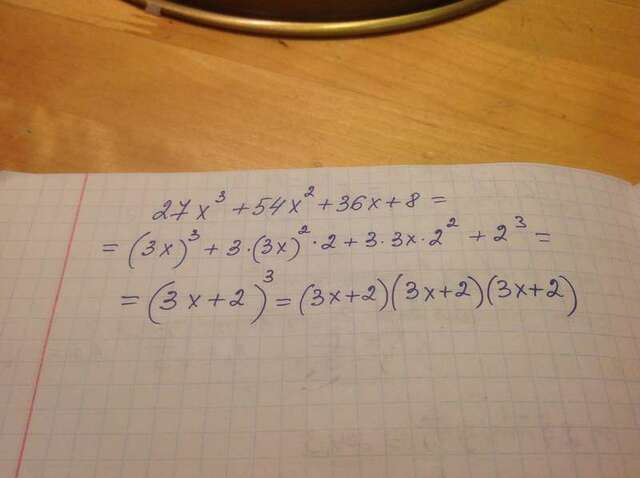 27x³ + 54x² + 36x + 8 =
= (3x)³ + 3·(3x)²·2 + 3·3x·2² + 2³ =
= (3x+2)³ = (3x+2)(3x+2)(3x+2)